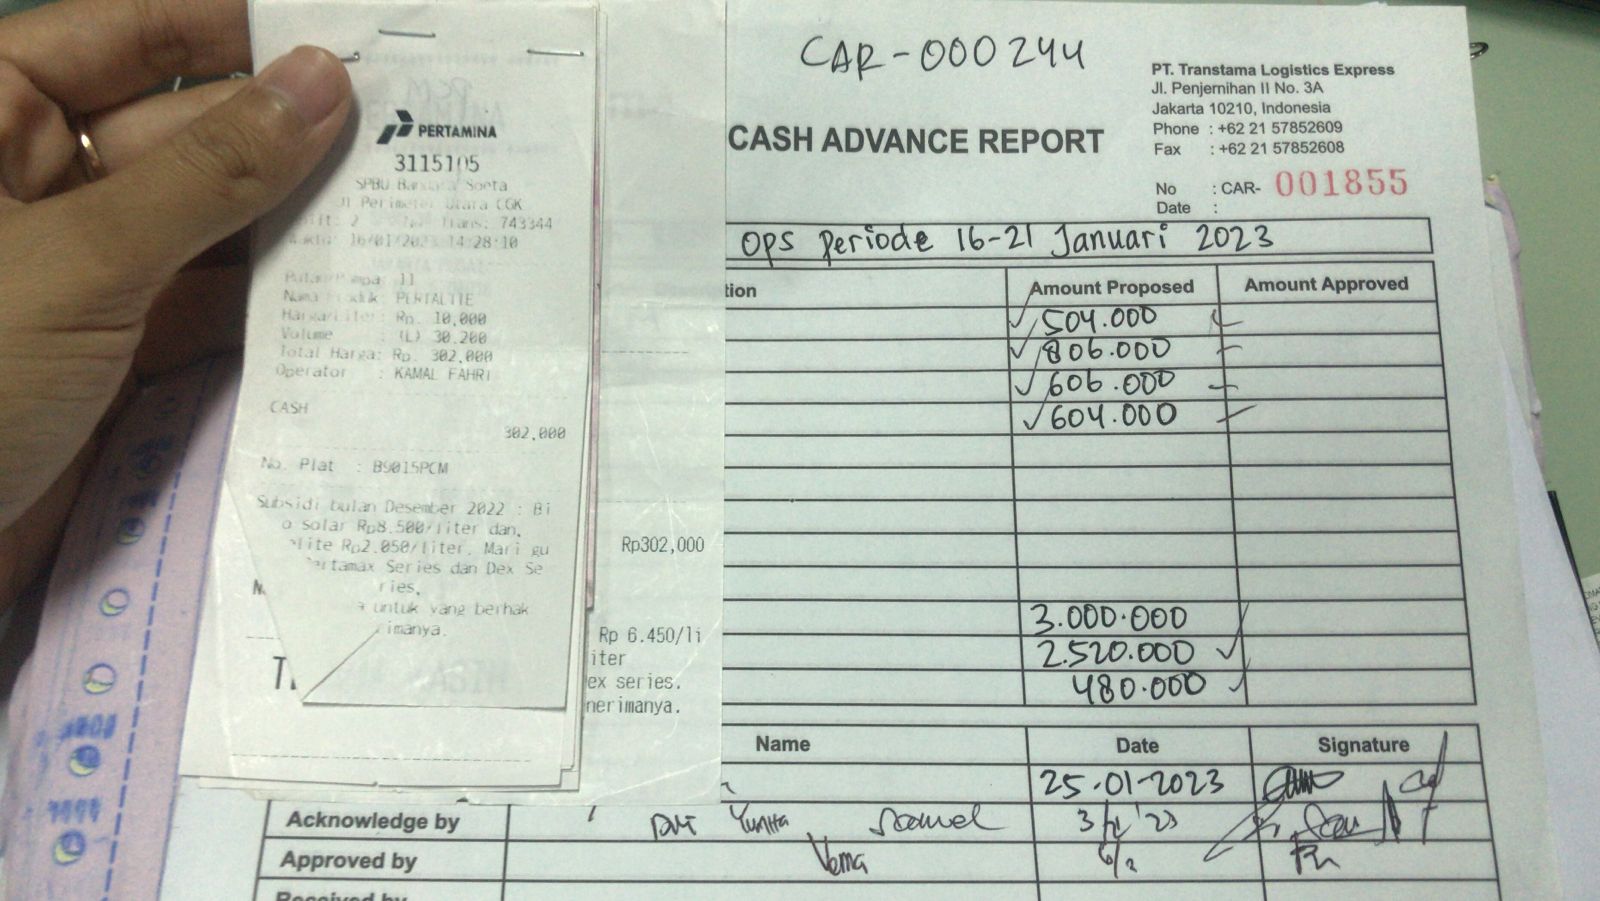 PERTAMINA
3115105
SPBU Bandara Soeta
Jl Perimeter Utara CGK
Trans: 743344
16/01/2023 14:28:10
Pulau/Pompa: 11
Nama Produk: PERTALITE
Harga/Liter: Rp. 10,000
Volume : (L) 30.200
Total Harga: Rp. 302,000
Operator : KAMAL FAHRI
CASH
302,000
No. Plat : B9015PCM
Subsidi bulan Desember 2022 : Bi
o solar Rp8.500/liter dan,
lite Rp2.050/liter. Mari gu
rtamax Series dan Dex Se
ries,
untuk yang berhak
rimanya.
Rp302,000
Rp 6.450/li
iter
ex series.
nerimanya.
CAR-000244
CASH ADVANCE REPORT
PT. Transtama Logistics Express
Jl. Penjernihan II No. 3A
Jakarta 10210, Indonesia
Phone : +62 21 57852609
Fax : +62 21 57852608
No : CAR- 001855
Date :
Ops Periode 16-21 Januari 2023
tion Amount Proposed Amount Approved
504.000
806.000
606.000
604.000
3.000.000
2.520.000
480.000
Name Date Signature
25-01-2023
Acknowledge by Yunita
Approved by Verna
Received by